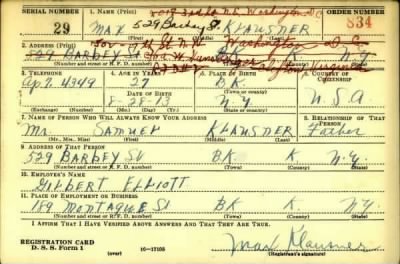 SERIAL NUMBER
1. NAME (Print)
ORDER NUMBER
29
529 Barbey St.
834
MAX KLAUSNER
(First) (Middle) (Last)
2. ADDRESS (Print)
Washington D.C.
529 BARBEY ST BK K N.Y.
(Number and street or R. F. D. number) (Town) (County) (State)
3. TELEPHONE
4. AGE IN YEARS
5. PLACE OF BIRTH
6. COUNTRY OF CITIZENSHIP
27
BK.
4349
DATE OF BIRTH
(Town or county)
8-28-13
N.Y.
U.S.A
(Exchange) (Number)
(Mo.) (Day) (Yr.)
(State or country)
7. NAME OF PERSON WHO WILL ALWAYS KNOW YOUR ADDRESS
8. RELATIONSHIP OF THAT PERSON
Mr. SAMUEL KLAUSNER Father
(Mr., Mrs., Miss) (First) (Middle) (Last)
9. ADDRESS OF THAT PERSON
529 BARBEY St BK K. N.Y.
(Number and street or R. F. D. number) (Town) (County) (State)
10. EMPLOYER'S NAME
GILBERT ELLIOTT
11. PLACE OF EMPLOYMENT OR BUSINESS
189 MONTAGUE St BK K NY.
(Number and street or R. F. D. number) (Town) (County) (State)
I AFFIRM THAT I HAVE VERIFIED ABOVE ANSWERS AND THAT THEY ARE TRUE.
REGISTRATION CARD
D. S. S. Form 1
(over)
16—17105
Max Klausner
(Registrant's signature)